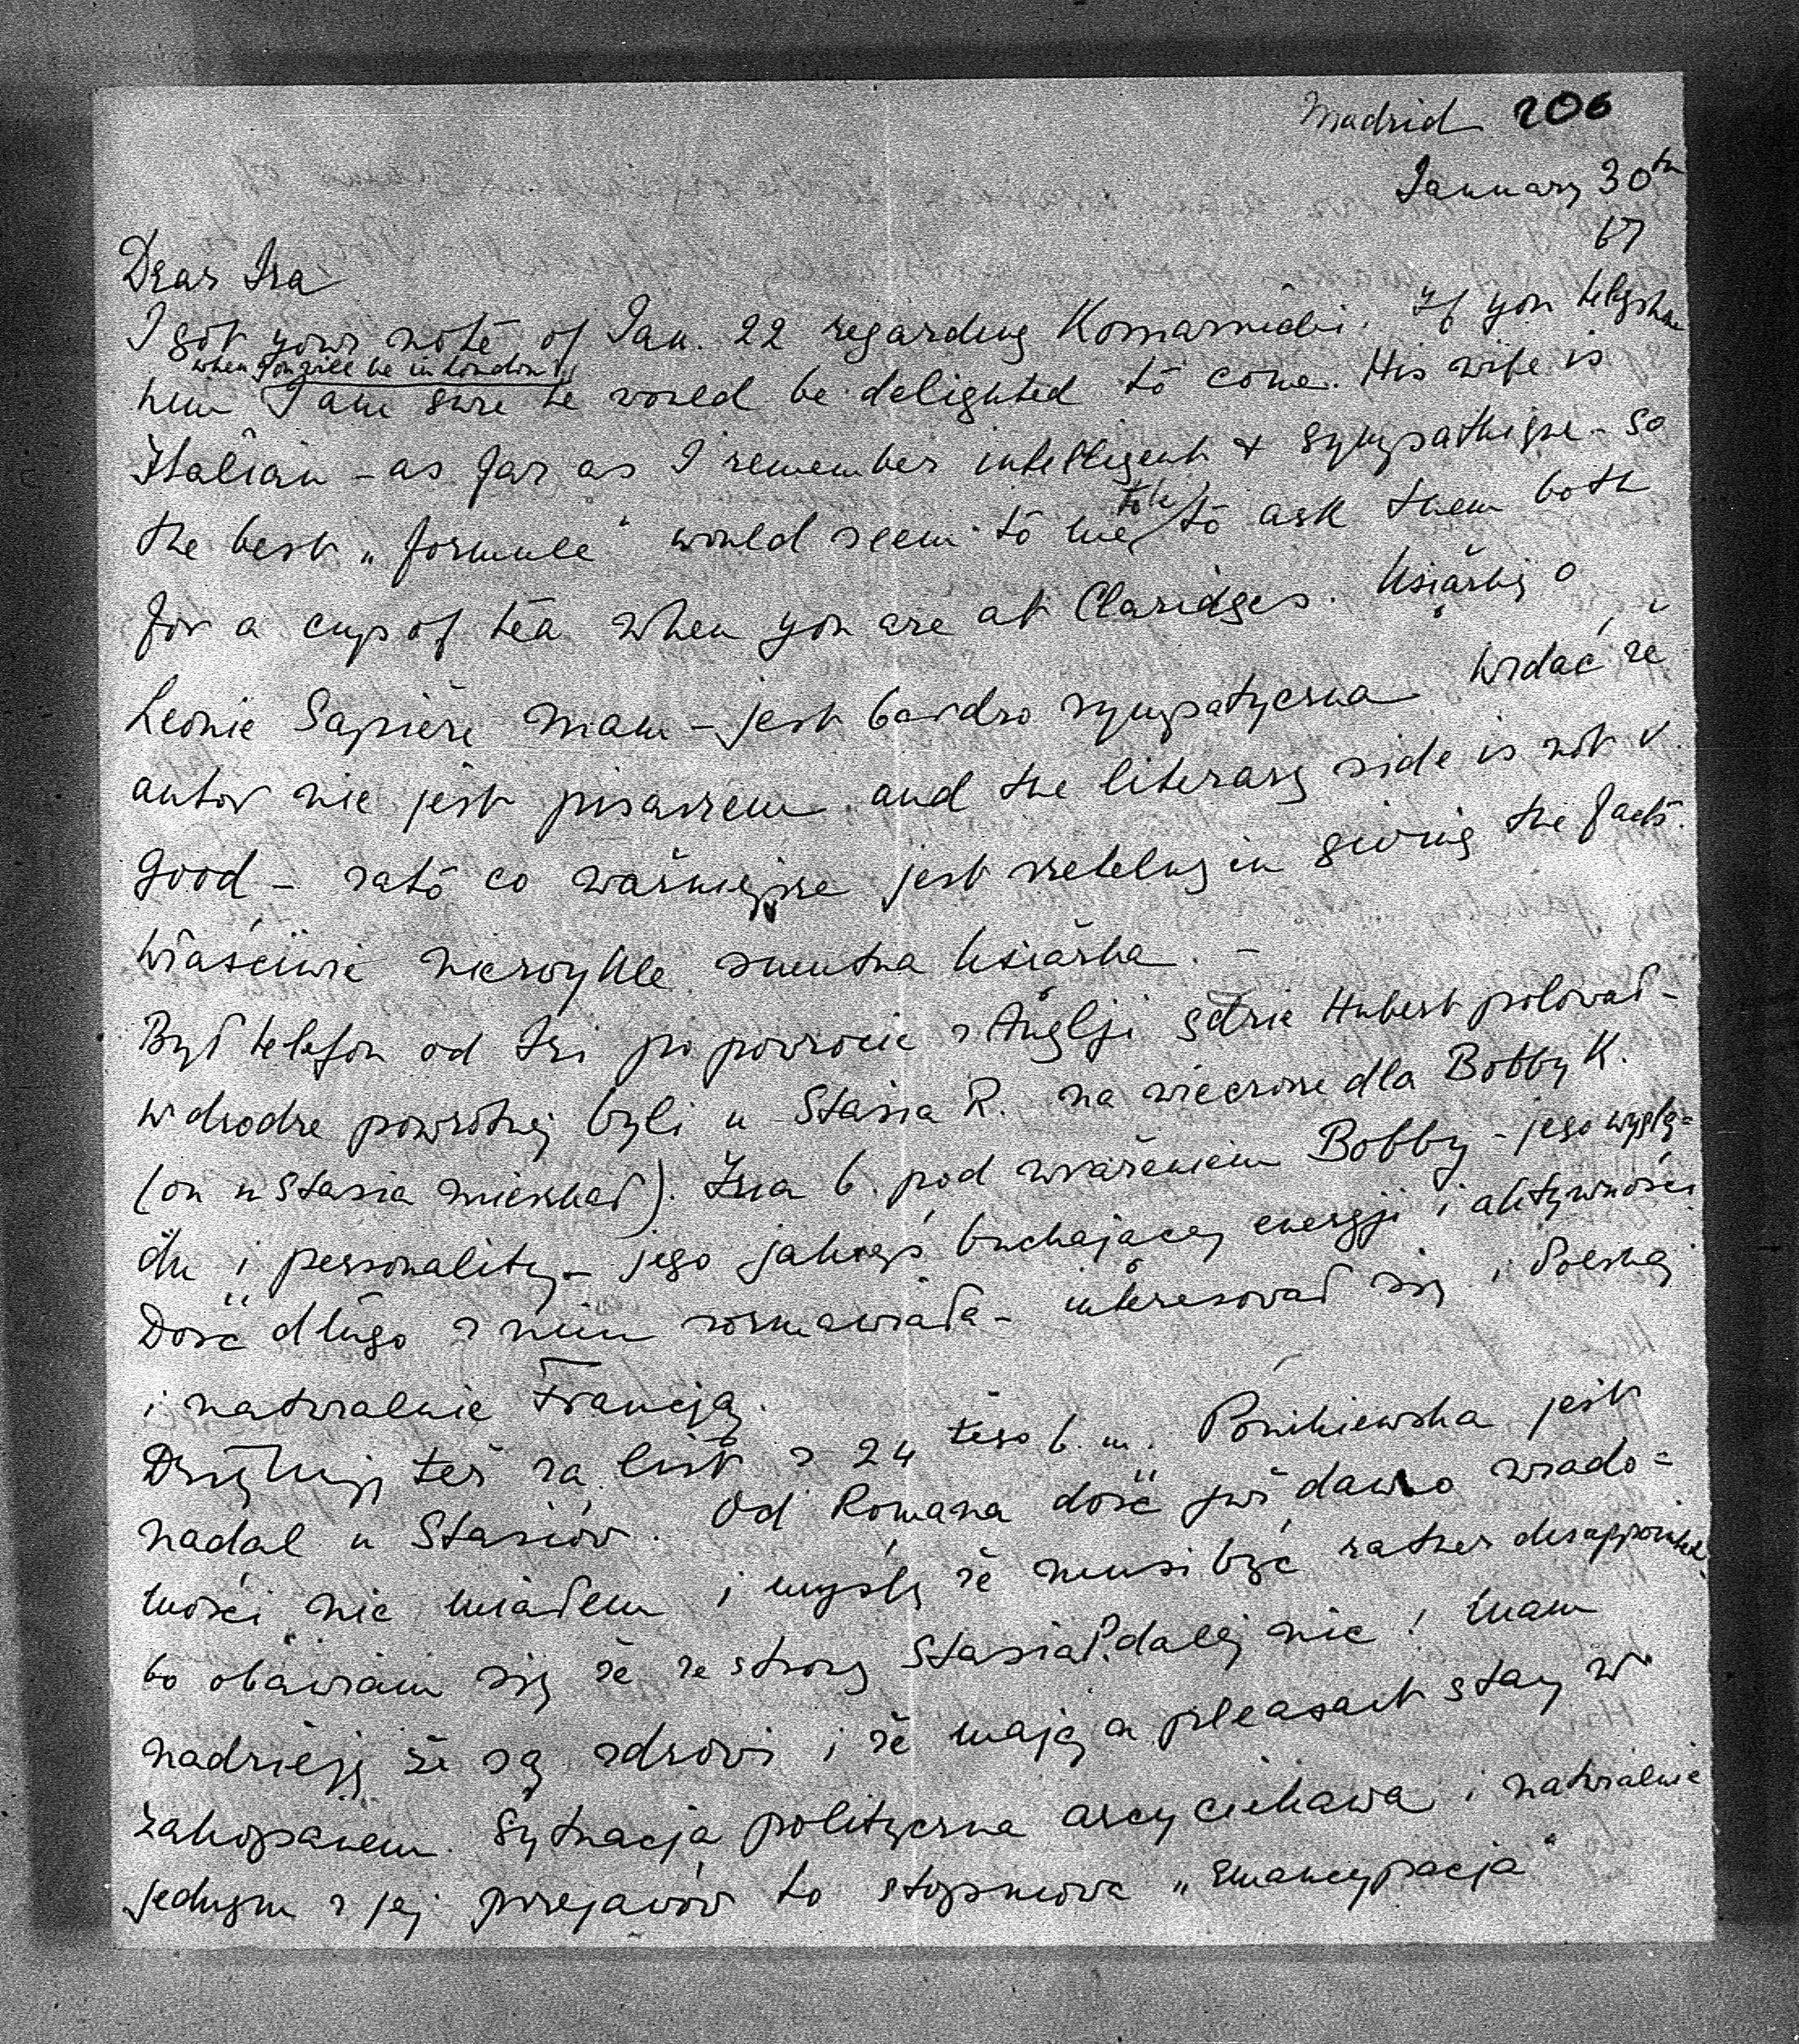 Madrid 206
January 30th
67
Dear Isa
I got your note of Jan. 22 regarding Komarnicki. If you telephone
when you will be in London
him I am sure he would be delighted to come. His wife is
Italian – as far as I remember intelligent & sympathique – so
to be
the best „formule" would seem to me to ask them both
for a cup of tea when you are at Claridges. Książkę o
Leonie Sapieże mam – jest bardzo sympatyczna widać że
autor nie jest pisarzem and the literary side is not v.
good – zato co ważniejsze jest rzetelny in giving the facts.
Właściwie niezwykle smutna książka. –
Był telefon od Izi po powrocie z Anglji gdzie Hubert polował –
w drodze powrotnej byli u Stasia R. na wieczorze dla Bobby K.
(on u Stasia mieszkał). Izia b. pod wrażeniem Bobby – jego wyglą=
du i personality – jego jakiejś buchającej energji i aktywności
Dość długo z nim rozmawiała – interesował się i Polską
i naturalnie Francją.
Dziękuję też za list z 24 tego b. m. Ponikiewska jest
nadal u Stasiów. Od Romana dość już dawno wiado=
mości nie miałem i myślę że musi być rather disappointed
bo obawiam się że ze strony Stasia P. dalej nic! Mam
nadzieję że są zdrowi i że mają a pleasant stay w
Zakopanem. Sytuacja polityczna arcyciekawa i naturalnie
jednym z jej przejawów to stopniowa „emancypacja"